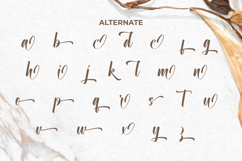 ALTERNATE
a b c d e f g
h i j k l m n
o p q r s t u
v w x y z